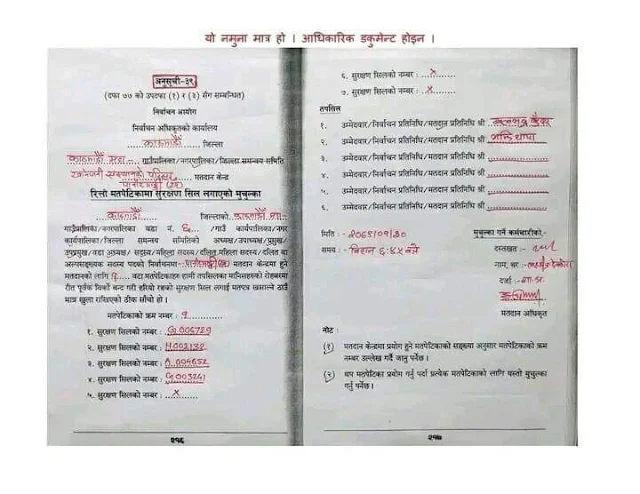 यो नमुना मात्र हो । आधिकारिक डकुमेन्ट होइन ।
अनुसूची-३९
(दफा ७७ को उपदफा (१) र (३) सँग सम्बन्धित)
निर्वाचन आयोग
निर्वाचन अधिकृतको कार्यालय
काठमाडौँ जिल्ला
काठमाडौँ गाउँपालिका/नगरपालिका/जिल्ला समन्वय समिति
मतदान केन्द्र
रित्तो मतपेटिकामा सुरक्षण सिल लगाएको मुचुल्का
काठमाडौँ जिल्लाको काठमाडौँ
गाउँपालिका/नगरपालिका वडा नं. ६ /गाउँ कार्यपालिका/नगर
कार्यपालिका/जिल्ला समन्वय समितिको अध्यक्ष/उपाध्यक्ष/प्रमुख/
उपप्रमुख/वडा अध्यक्ष/ सदस्य/महिला सदस्य/दलित महिला सदस्य/दलित वा
अल्पसंख्यक सदस्य पदको निर्वाचनमा मतदान केन्द्रमा हुने
मतदानको लागि वटा मतपेटिकाहरू हामी तपसिलका मानिसहरुको रोहबरमा
रीत पूर्वक बिर्को बन्द गरी हरियो रङको सुरक्षण सिल लगाई मतपत्र खसाल्ने ठाउँ
मात्र खुला राखिएको ठीक साँचो हो ।
मतपेटिकाको क्रम नम्बर : १
१. सुरक्षण सिलको नम्बर : G005729
२. सुरक्षण सिलको नम्बर :
३. सुरक्षण सिलको नम्बर :
४. सुरक्षण सिलको नम्बर :
५. सुरक्षण सिलको नम्बर : X
२१६
६. सुरक्षण सिलको नम्बर : X
७. सुरक्षण सिलको नम्बर : X
तपसिल
१. उम्मेदवार/निर्वाचन प्रतिनिधि/मतदान प्रतिनिधि श्री
२. उम्मेदवार/निर्वाचन प्रतिनिधि/मतदान प्रतिनिधि श्री थापा
३. उम्मेदवार/निर्वाचन प्रतिनिधि/मतदान प्रतिनिधि श्री
४. उम्मेदवार/निर्वाचन प्रतिनिधि/मतदान प्रतिनिधि श्री
५. उम्मेदवार/निर्वाचन प्रतिनिधि/मतदान प्रतिनिधि श्री
६. उम्मेदवार/निर्वाचन प्रतिनिधि/मतदान प्रतिनिधि श्री
मुचुल्का गर्ने कर्मचारीको,-
मिति :
दस्तखत :
समय : बिहान ६:४५ बजे
नाम, थर :
दर्जा :
मतदान अधिकृत
नोट :
(१) मतदान केन्द्रमा प्रयोग हुने मतपेटिकाको सङ्ख्या अनुसार मतपेटिकाको क्रम
नम्बर उल्लेख गर्दै जानु पर्नेछ ।
(२) थप मतपेटिका प्रयोग गर्नु पर्दा प्रत्येक मतपेटिकाको लागि यस्तो मुचुल्का
गर्नु पर्नेछ ।
२१७